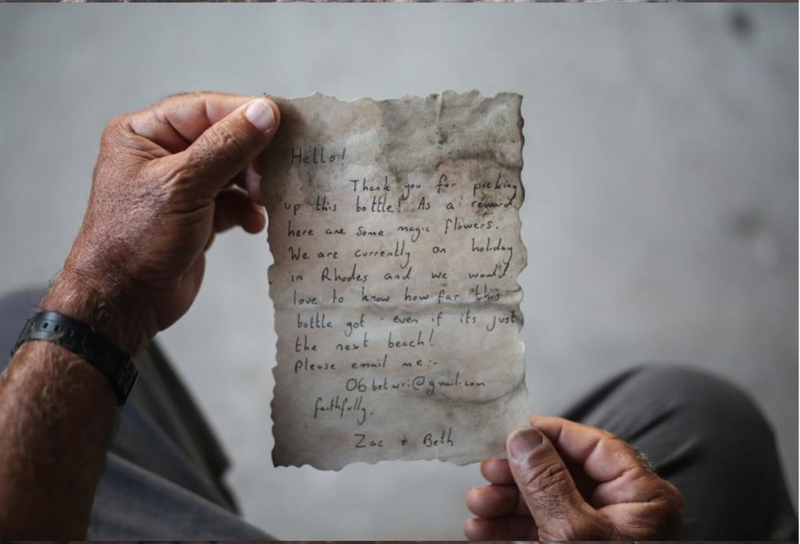 Hello!
Thank you for picking
up this bottle! As a reward,
here are some magic flowers.
We are currently on holiday
in Rhodes and we would
love to know how far this
bottle got - even if its just
the next beach!
Please email me:-
faithfully,
Zac + Beth